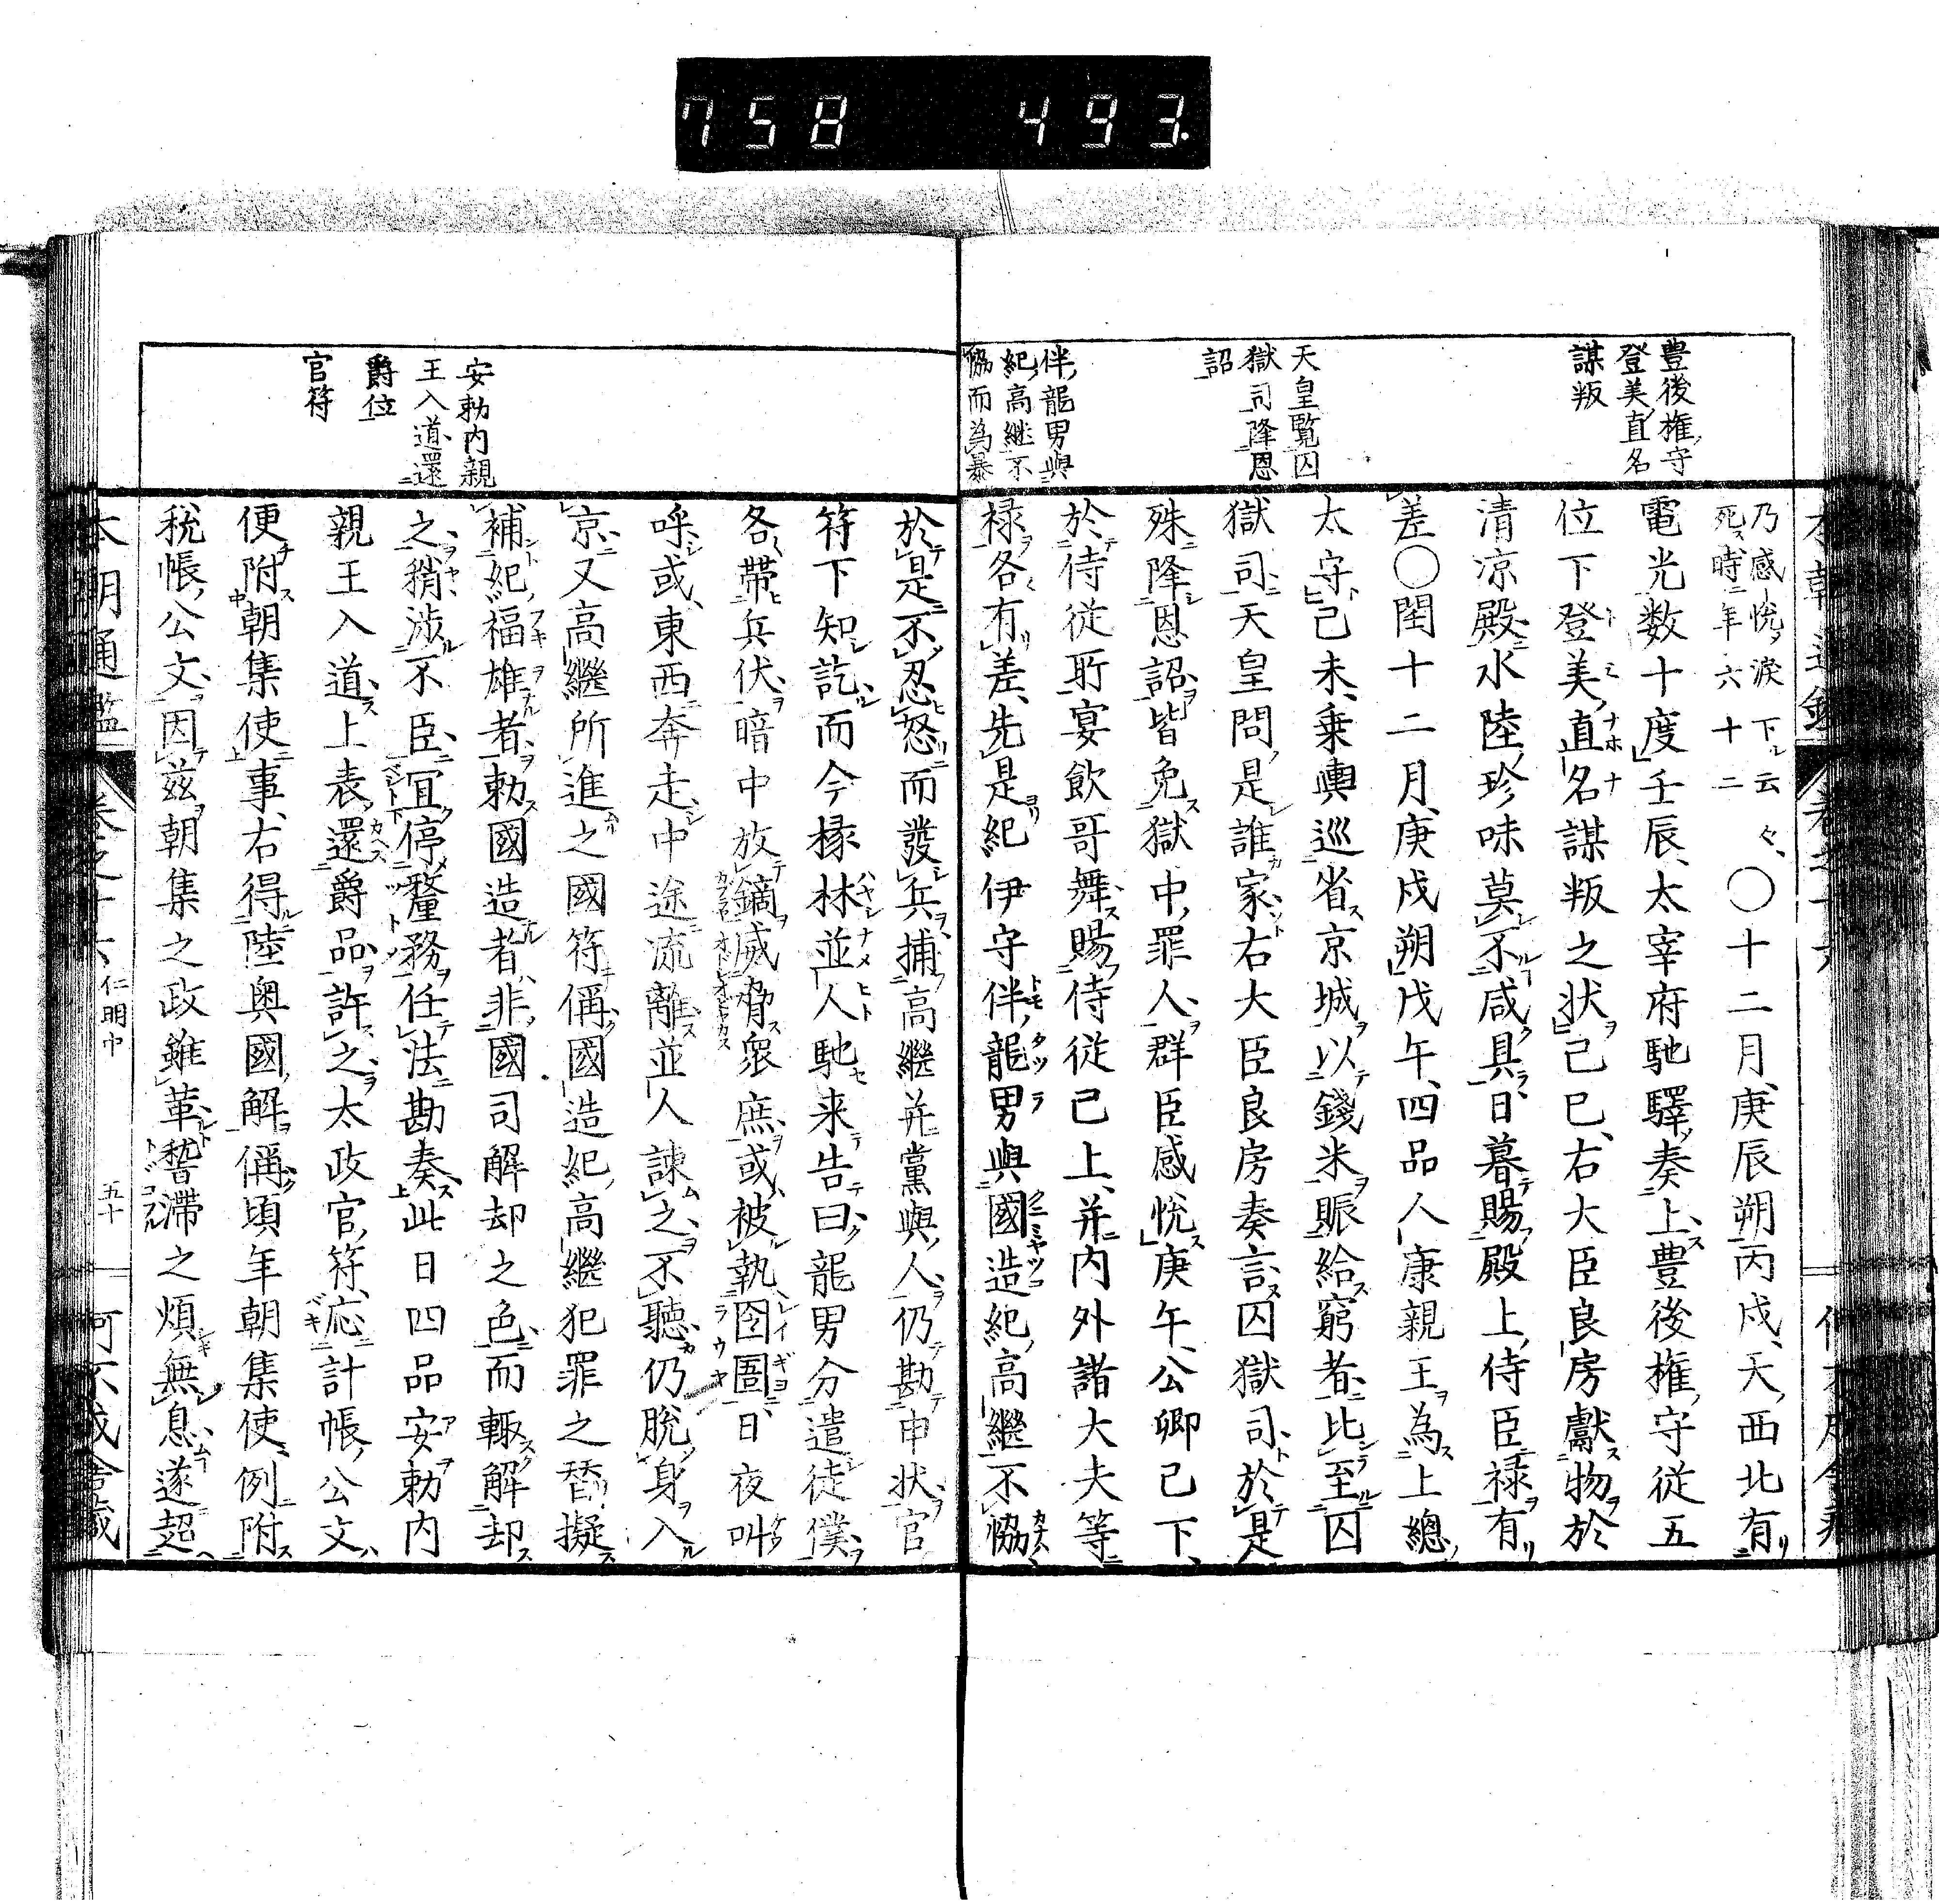 758 493.
豊後権守
登美直名
謀叛
天皇覧囚
獄司降恩
詔
伴龍男與
紀高継不
恊而為暴
乃感悦淚下云々
死時年六十二
〇十二月庚辰朔丙戌天西北有
電光数十度壬辰太宰府馳驛奏上豊後権守従五
位下登美直名謀叛之状己巳右大臣良房獻物於
清凉殿水陸珍味莫不咸具日暮賜殿上侍臣禄有
差〇閏十二月庚戌朔戊午四品人康親王為上總
太守己未乗輿巡省京城以錢米賑給窮者比至囚
獄司天皇問是誰家右大臣良房奏言囚獄司於是
殊降恩詔皆免獄中罪人群臣感悦庚午公卿已下
於侍従所宴飲哥舞賜侍従已上并内外諸大夫等
禄各有差先是紀伊守伴龍男與國造紀高継不恊
安勅内親
王入道還
爵位
官符
於是不忍怒而發兵捕高継并黨與人仍勘申状官
符下知訖而今掾林並人馳来告曰龍男分遣徒僕
各帶兵伏暗中放鏑威脅衆庶或被執囹圄日夜叫
呼或東西奔走中途流離並人諫之不聽仍脫身入
京又高継所進之國符偁國造紀高継犯罪之替擬
補紀福雄者勅國造者非國司解却之色而輙解却
之稍渉不臣宜停釐務任法勘奏此日四品安勅内
親王入道上表還爵品許之太政官符応計帳公文
便附朝集使事右得陸奥國解偁頃年朝集使例附
税帳公文因茲朝集之政雖革䅲滞之煩無息遂起
本朝通鑑 卷之十六 仁明中 五十